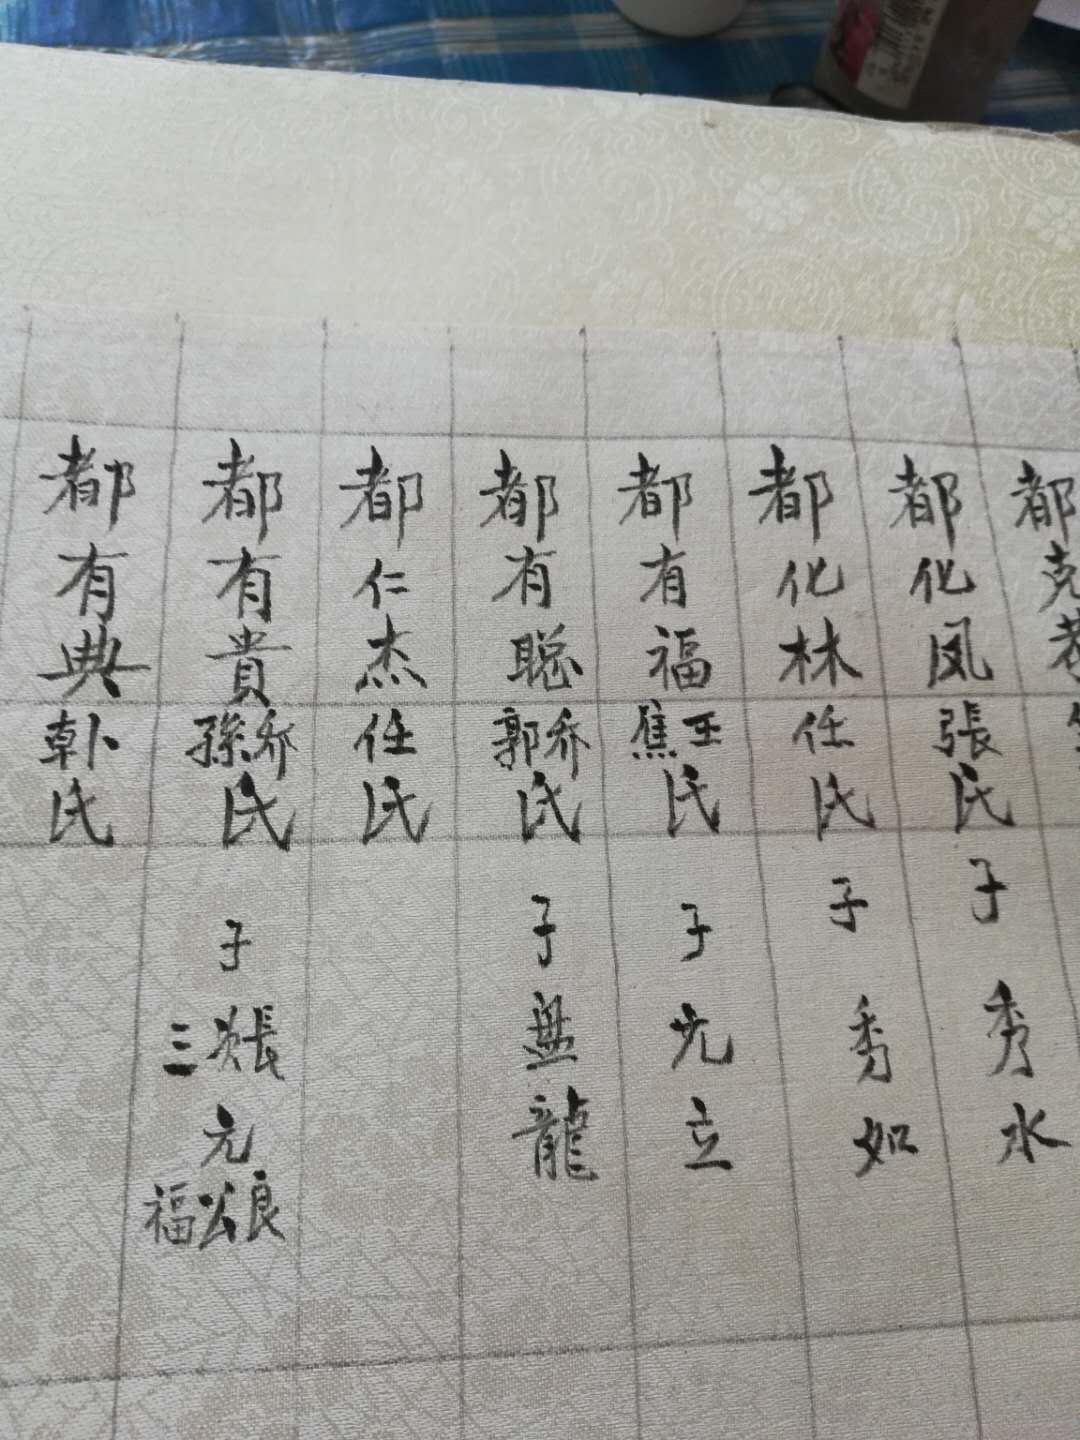 都克
都化凤張氏子秀水
都化林任氏子秀如
都有福王焦氏子光立
都有聪乔郭氏子盤龍
都仁杰任氏
都有貴乔孫氏子長次三元良公福
都有典韩氏